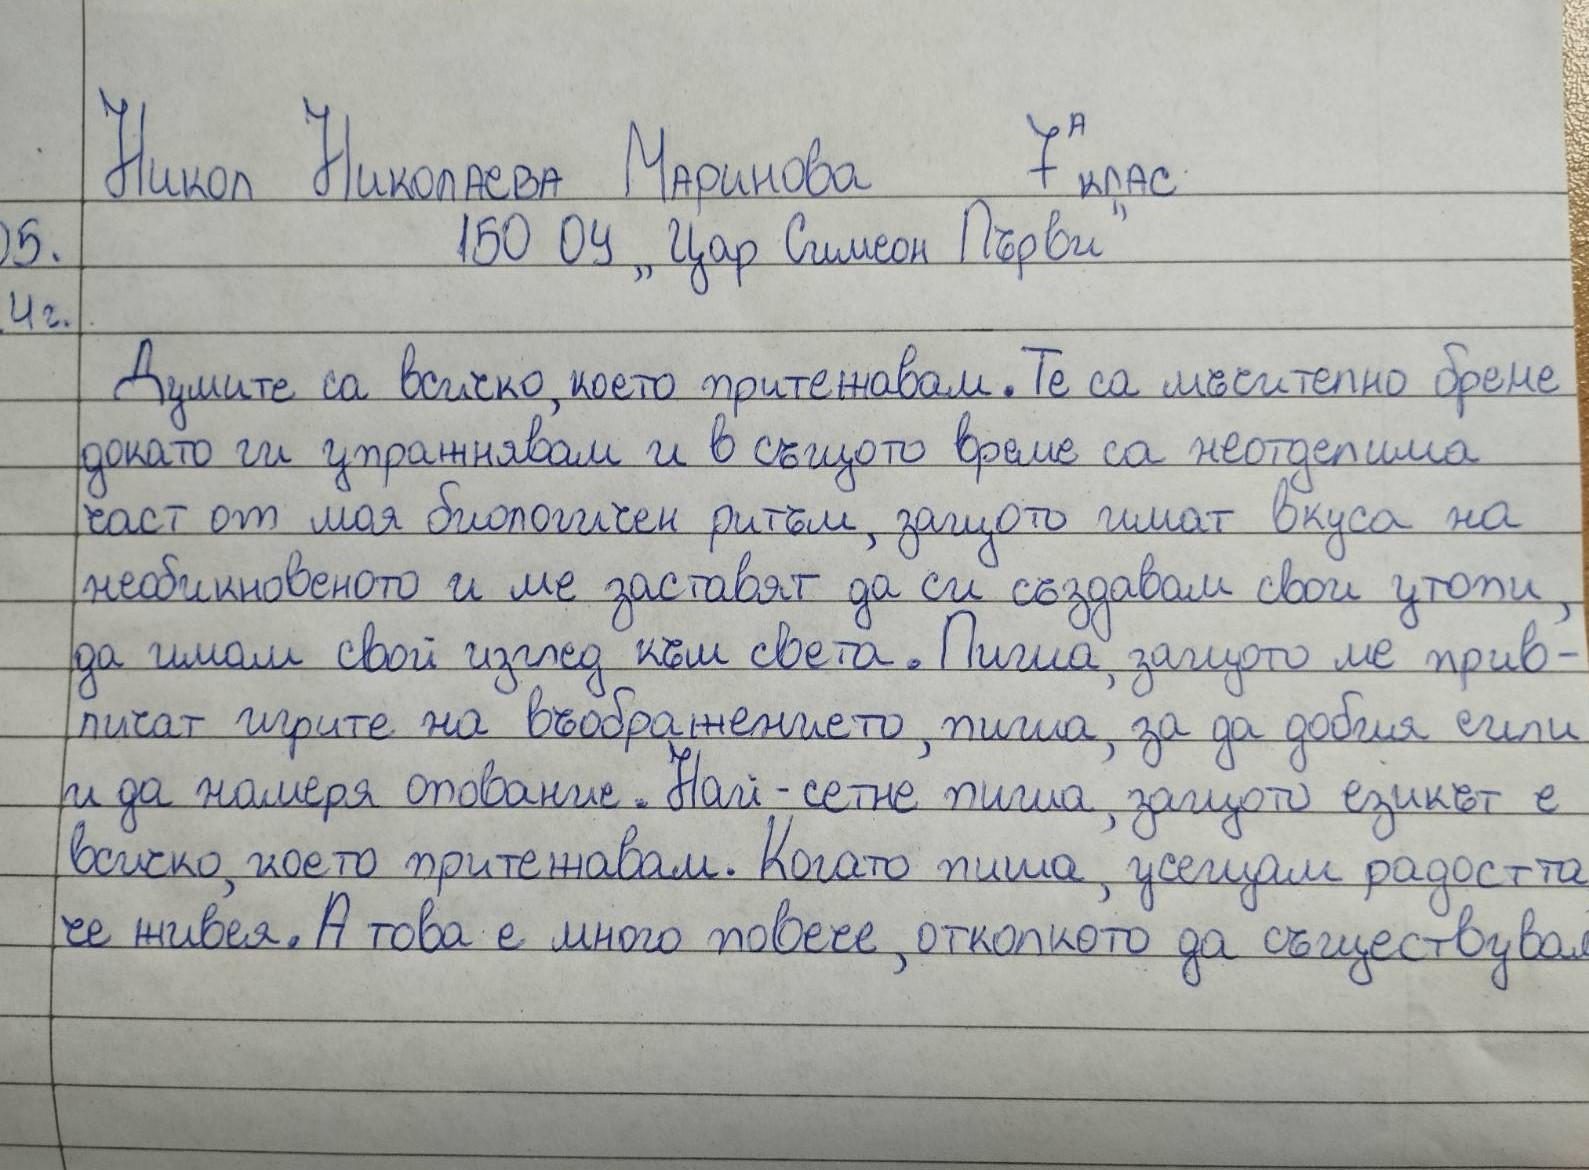 Никол Николаева Маринова 7А клас
05. 150 ОУ „Цар Симеон Първи"
4г.
Думите са всичко, което притежавам. Те са мъчително бреме
докато ги упражнявам и в същото време са неотделима
част от моя биологичен ритъм, защото имат вкуса на
необикновеното и ме заставят да си създавам свои утопи,
да имам свой изглед към света. Пиша, защото ме прив-
личат игрите на въображението, пиша, за да добия сили
и да намеря опование. Най-сетне пиша, защото езикът е
всичко, което притежавам. Когато пиша, усещам радостта
че живея. А това е много повече, отколкото да съществувам